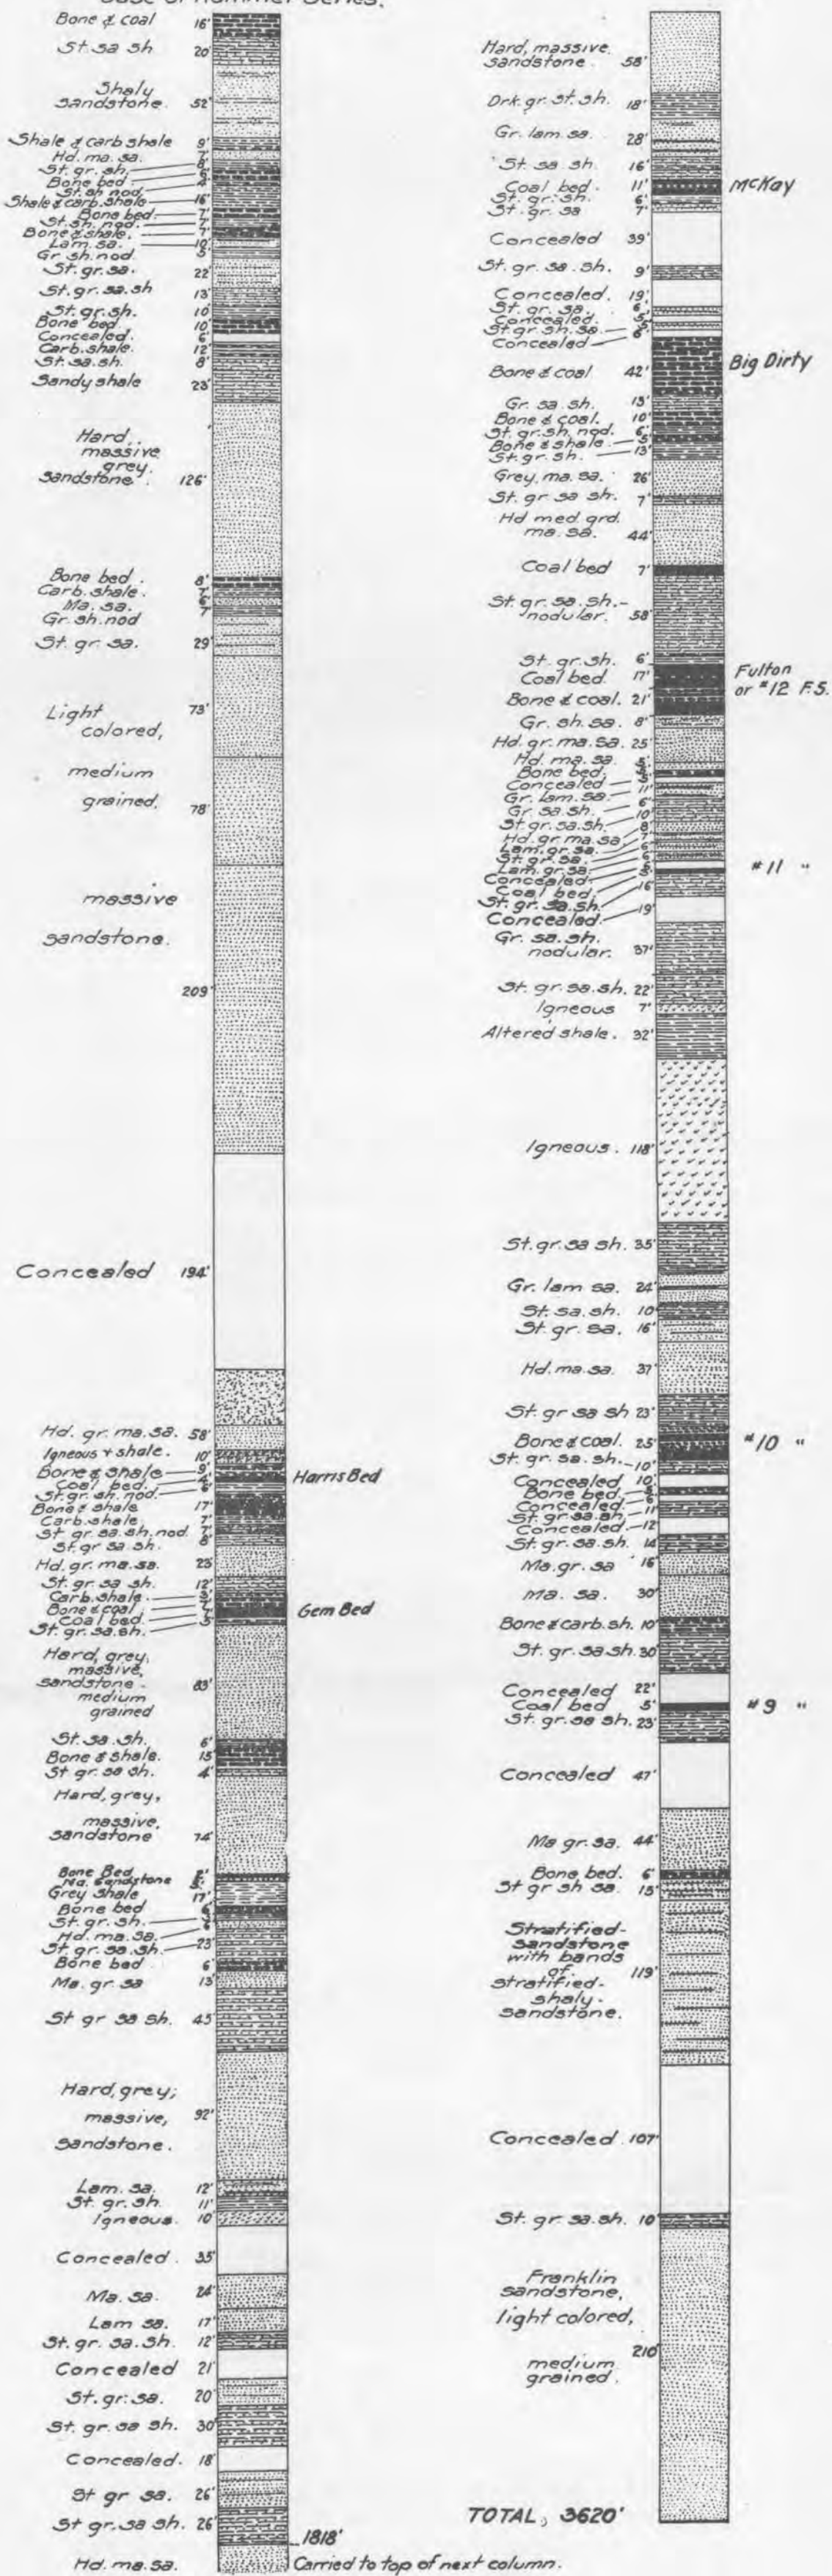 Base of Kummer Series.
Bone & coal 16'
St sa sh 20'
Shaly
sandstone. 52'
Shale & carb shale 9'
Hd. ma. sa. 7'
St. gr. sh. 8'
Bone bed. 6'
St. sh nod. 4'
Shale & carb. shale 16'
Bone bed. 7'
St. sh. nod. 7'
Bone & shale. 7'
Lam. sa. 10'
Gr sh. nod. 5'
St. gr. sa. 22'
St. gr. sa. sh 13'
St. gr. sh. 10'
Bone bed. 10'
Concealed. 6'
Carb. shale. 12'
St. sa. sh. 8'
Sandy shale 23'
Hard,
massive
grey.
sandstone. 126'
Bone bed. 8'
Carb. shale. 7'
Ma. sa. 6'
Gr sh. nod 7'
St. gr. sa. 29'
Light 73'
colored,
medium
grained, 78'
massive
sandstone.
209'
Concealed 194'
Hd. gr. ma. sa. 58'
Igneous + shale. 10'
Bone & shale 9'
Coal bed. 4' Harris Bed
St. gr. sh. nod. 6'
Bone & shale 17'
Carb. shale 7'
St gr. sa. sh. nod. 7'
St. gr sa sh. 8'
Hd. gr. ma. sa. 23'
St. gr sa sh. 12'
Carb. shale.
Bone & coal Gem Bed
Coal bed.
St. gr. sa. sh.
Hard, grey,
massive,
sandstone. 83'
medium
grained
St. sa. sh. 6'
Bone & shale. 15'
St gr. sa sh. 4'
Hard, grey,
massive,
sandstone 74'
Bone Bed
Ma. sandstone
Grey shale 17'
Bone bed 6'
St. gr. sh.
Hd. ma. sa. 6'
St. gr sa. sh. 23'
Bone bed 6'
Ma. gr. sa 13'
St gr sa sh. 45'
Hard, grey;
massive, 92'
sandstone.
Lam. sa. 12'
St. gr. sh. 11'
Igneous. 10'
Concealed. 35'
Ma. sa. 24'
Lam sa. 17'
St. gr. sa. sh. 12'
Concealed 21'
St. gr. sa. 20'
St. gr. sa sh. 30'
Concealed. 18'
St gr sa. 26'
St gr. sa sh. 26'
1818'
Hd. ma. sa. Carried to top of next column.
Hard, massive.
sandstone. 58'
Drk. gr. st. sh. 18'
Gr. lam. sa. 28'
St sa sh. 16'
Coal bed. 11' McKay
St. gr. sh. 6'
St. gr. sa 7'
Concealed 39'
St. gr. sa. sh. 9'
Concealed. 19'
St. gr. sa. 6'
Concealed. 5'
St. gr. sh. sa. 5'
Concealed 6'
Bone & coal 42' Big Dirty
Gr. sa. sh. 13'
Bone & coal. 10'
St. gr. sh. nod. 6'
Bone & shale 5'
St. gr. sh. 13'
Grey. ma. sa. 26'
St. gr sa sh. 7'
Hd med. grd.
ma. sa. 44'
Coal bed 7'
St. gr. sa. sh.-
nodular. 58'
St. gr. sh. 6'
Coal bed. 17' Fulton
Bone & coal. 21' or #12 F.S.
Gr. sh. sa. 8'
Hd. gr. ma. sa. 25'
Hd. ma. sa. 5'
Bone bed.
Concealed
Gr. lam. sa. 11'
Gr sa. sh. 6'
St. gr. sa. sh. 10'
Hd. gr. ma. sa 8'
Lam. gr. sa. 7'
St. gr. sa. 6'
Lam. gr. sa. 6'
Concealed #11 "
Coal bed.
St. gr. sa. sh. 16'
Concealed. 19'
Gr. sa. sh.
nodular. 37'
St. gr. sa. sh. 22'
Igneous 7'
Altered shale. 32'
Igneous. 118'
St. gr. sa sh. 35'
Gr. lam sa. 24'
St. sa. sh. 10'
St. gr. sa. 16'
Hd. ma. sa. 37'
St. gr sa sh 23'
Bone & coal. 25' #10 "
St. gr. sa. sh. 10'
Concealed 10'
Bone bed.
Concealed 6'
St. gr sa. sh 11'
Concealed. 12'
St. gr. sa. sh. 14'
Ma. gr. sa 16'
Ma. sa. 30'
Bone & carb. sh. 10'
St. gr. sa sh. 30'
Concealed 22'
Coal bed 5' #9 "
St. gr. sa sh. 23'
Concealed 47'
Ma gr. sa. 44'
Bone bed. 6'
St gr sh sa. 15'
Stratified-
sandstone
with bands
of. 119'
stratified-
shaly-
sandstone.
Concealed. 107'
St. gr sa. sh. 10'
Franklin
sandstone,
light colored,
210'
medium
grained.
TOTAL, 3620'